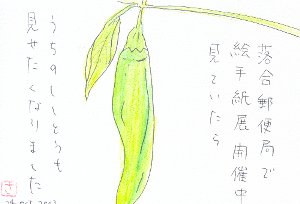 落合郵便局で
絵手紙展開催中
見ていたら
うちのししとうも
見せたくなりました